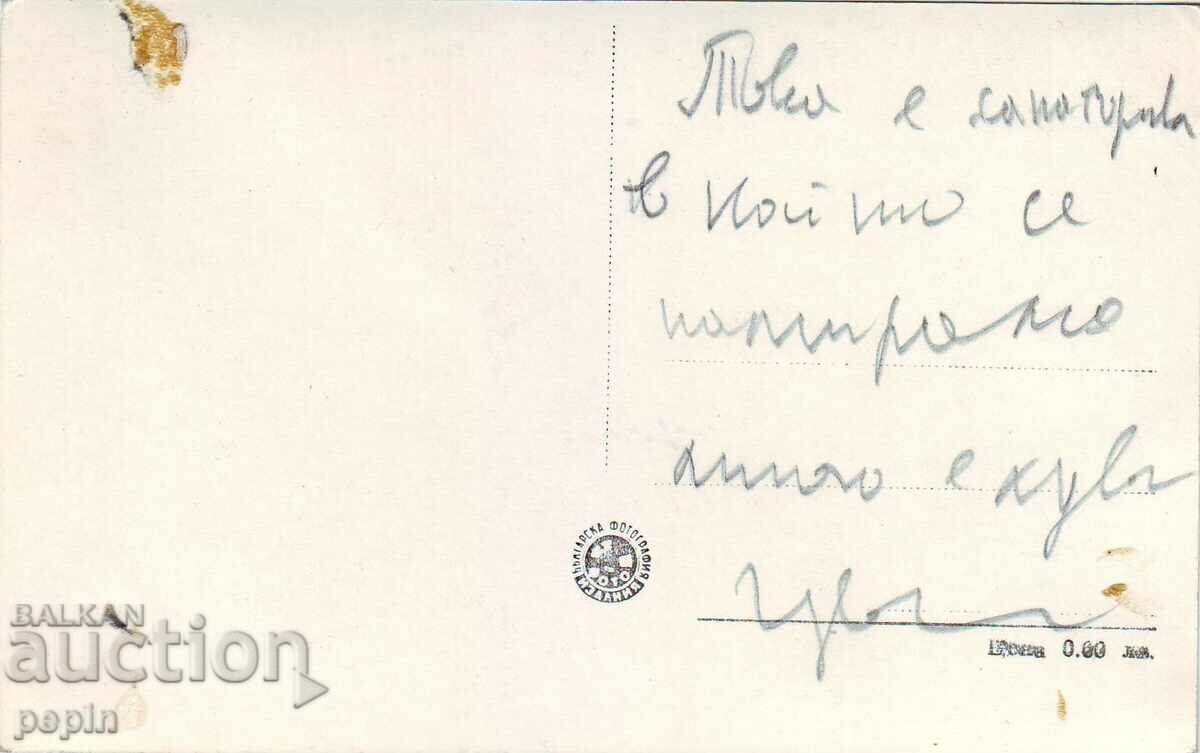 Това е санаториума
в който се
намираме
много е хубаво
БЪЛГАРСКА ФОТОГРАФИЯ
ФОТО
ИЗДАНИЯ
Цена 0.00 лв.
BALKAN
auction
pepin